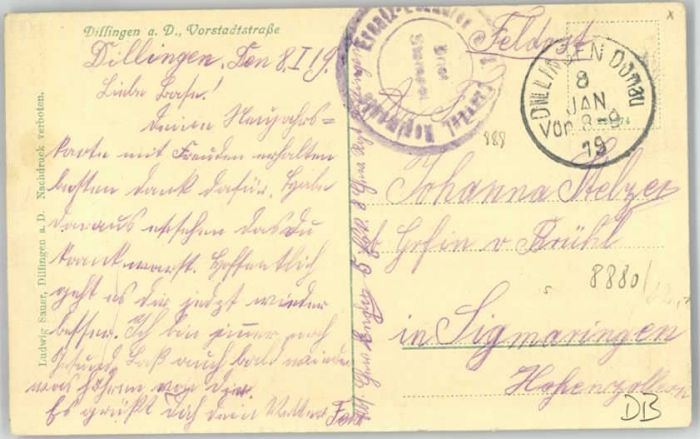 Dillingen a. D., Vorstadtstraße
Dillingen, den 8.I.19.
Liebe Base!
Deine Neujahrs=
karte mit Freuden erhalten
besten Dank dafür. Habe
daraus ersehen das du
krank warst. Hoffentlich
geht es dir jetzt wieder
besser. Ich bin immer noch
Gesund. Laß auch bald wieder
was hören von dir.
Es grüßt Dich dein Vetter
Ludwig Sauer, Dillingen a. D. Nachdruck verboten.
Feldpost
Brief
Stempel
DILLINGEN Donau
8
JAN.
Vor. 8-9
19
888
Johanna Stelzer
b/ Gräfin v Brühl
8880
in Sigmaringen
Hohenzollern
DB